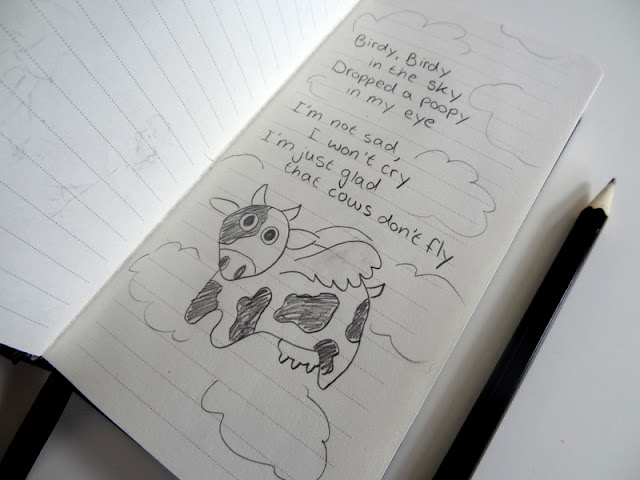 Birdy, Birdy
in the sky
Dropped a poopy
in my eye
I'm not sad,
I won't cry
I'm just glad
that cows don't fly